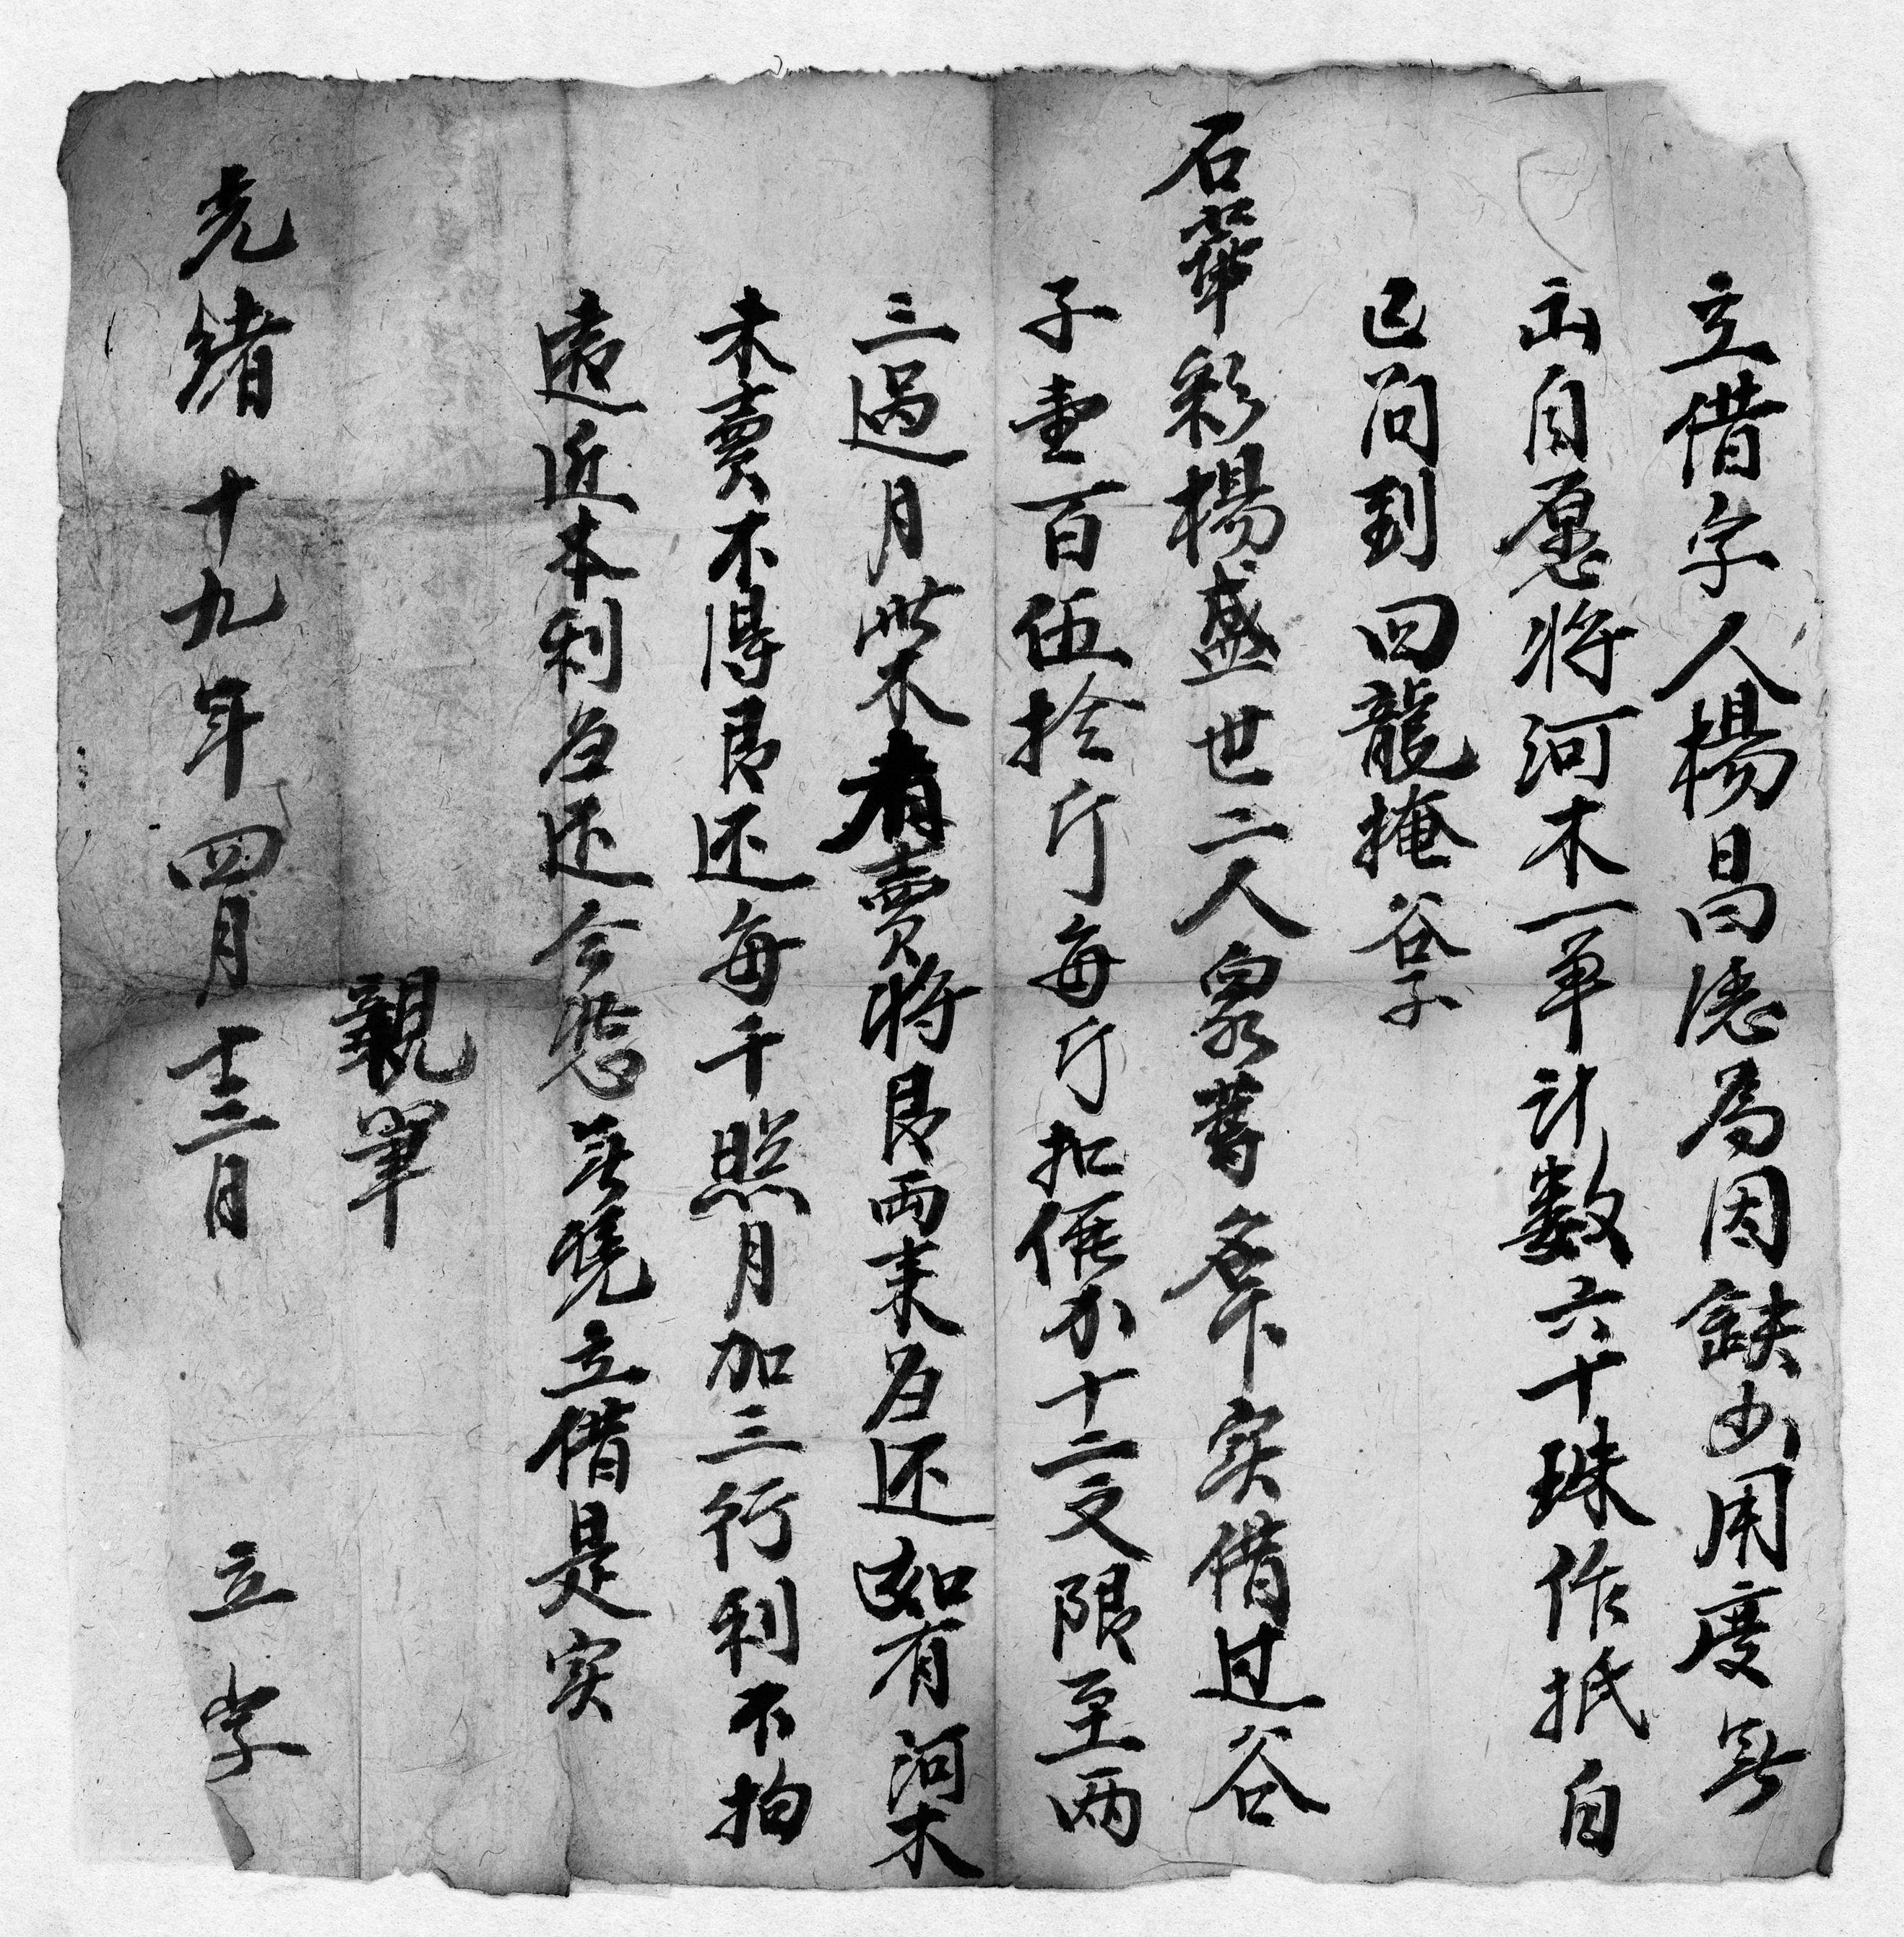 立借字人楊昌德為因缺少用度無
出自愿将河木一单计数六十珠作抵自
己问到回龍掩谷子
石華彩楊盛世二人眾等名下实借过谷
子壹百伍拾斤每斤扣價十二文限至两
三過月此木有賣将艮两来还如有河木
未賣不得艮还每千照月加三行利不拘
遠近本利还今恐無凭立借是实
親筆
光绪十九年四月十二日 立字